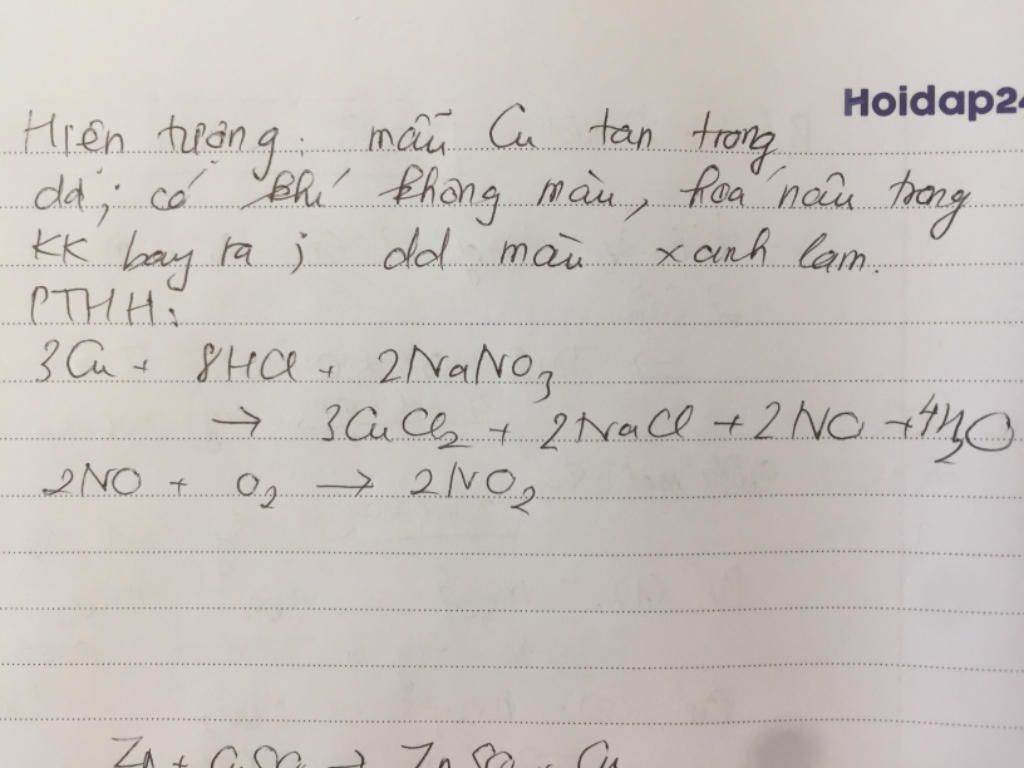 Hoidap24
Hiện tượng: mẫu Cu tan trong
dd; có khí không màu, hoá nâu trong
KK bay ra; dd màu xanh lam.
PTHH:
3Cu + 8HCl + 2NaNO3
→ 3CuCl2 + 2NaCl + 2NO + 4H2O
2NO + O2 → 2NO2